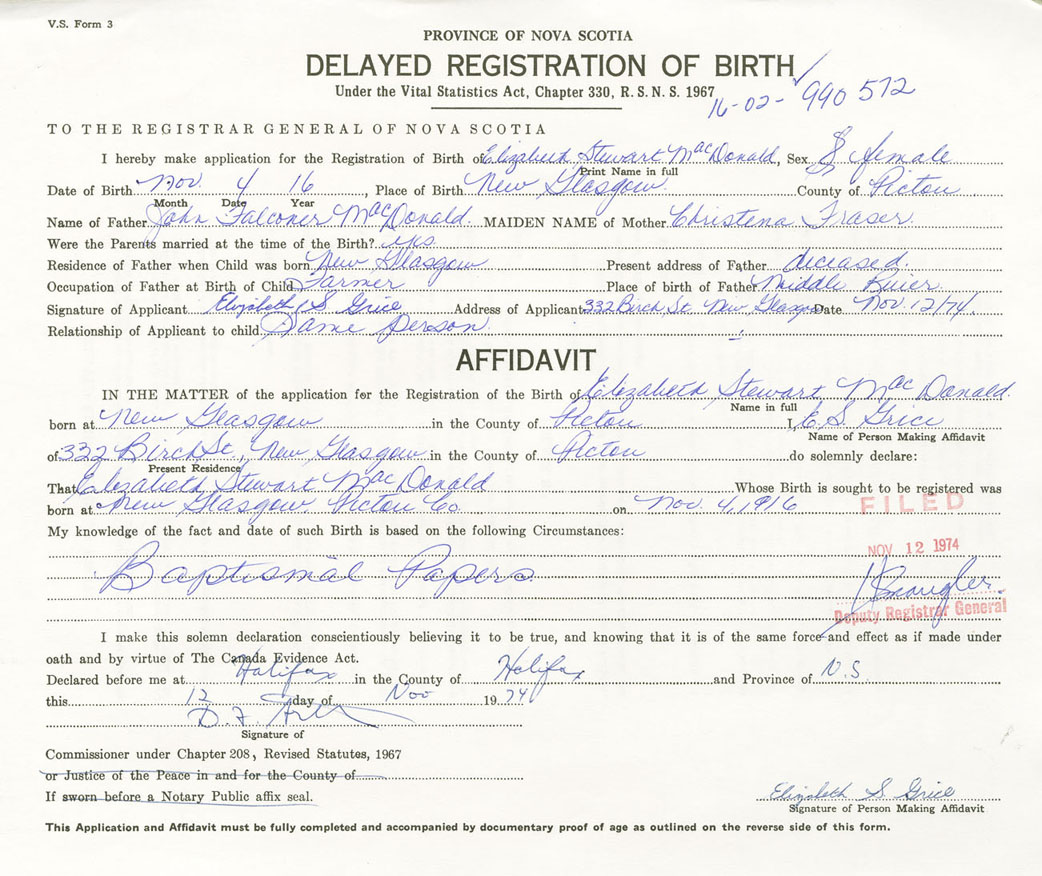 V.S. Form 3
PROVINCE OF NOVA SCOTIA
DELAYED REGISTRATION OF BIRTH
Under the Vital Statistics Act, Chapter 330, R. S. N. S. 1967
16-02-990 572
TO THE REGISTRAR GENERAL OF NOVA SCOTIA
I hereby make application for the Registration of Birth of Elizabeth Stewart MacDonald, Sex female
Print Name in full
Date of Birth Nov. 4 16, Place of Birth New Glasgow County of Pictou
Month Date Year
Name of Father John Falconer MacDonald. MAIDEN NAME of Mother Christena Fraser.
Were the Parents married at the time of the Birth? yes
Residence of Father when Child was born New Glasgow Present address of Father deceased.
Occupation of Father at Birth of Child Farmer Place of birth of Father Middle River
Signature of Applicant Elizabeth S Grice Address of Applicant 332 Birch St. New Glasgow Date Nov 12/74.
Relationship of Applicant to child Same person
AFFIDAVIT
IN THE MATTER of the application for the Registration of the Birth of Elizabeth Stewart MacDonald.
Name in full
born at New Glasgow in the County of Pictou I, E. S. Grice
Name of Person Making Affidavit
of 332 Birch St., New Glasgow in the County of Pictou do solemnly declare:
Present Residence
That Elizabeth Stewart MacDonald Whose Birth is sought to be registered was
born at New Glasgow Pictou Co. on Nov. 4, 1916
FILED
My knowledge of the fact and date of such Birth is based on the following Circumstances:
NOV 12 1974
Baptismal Papers
Deputy Registrar General
I make this solemn declaration conscientiously believing it to be true, and knowing that it is of the same force and effect as if made under
oath and by virtue of The Canada Evidence Act.
Declared before me at Halifax in the County of Halifax and Province of N.S.
this 12 day of Nov 1974
D. F.
Signature of
Commissioner under Chapter 208, Revised Statutes, 1967
or Justice of the Peace in and for the County of
If sworn before a Notary Public affix seal.
Elizabeth S Grice
Signature of Person Making Affidavit
This Application and Affidavit must be fully completed and accompanied by documentary proof of age as outlined on the reverse side of this form.